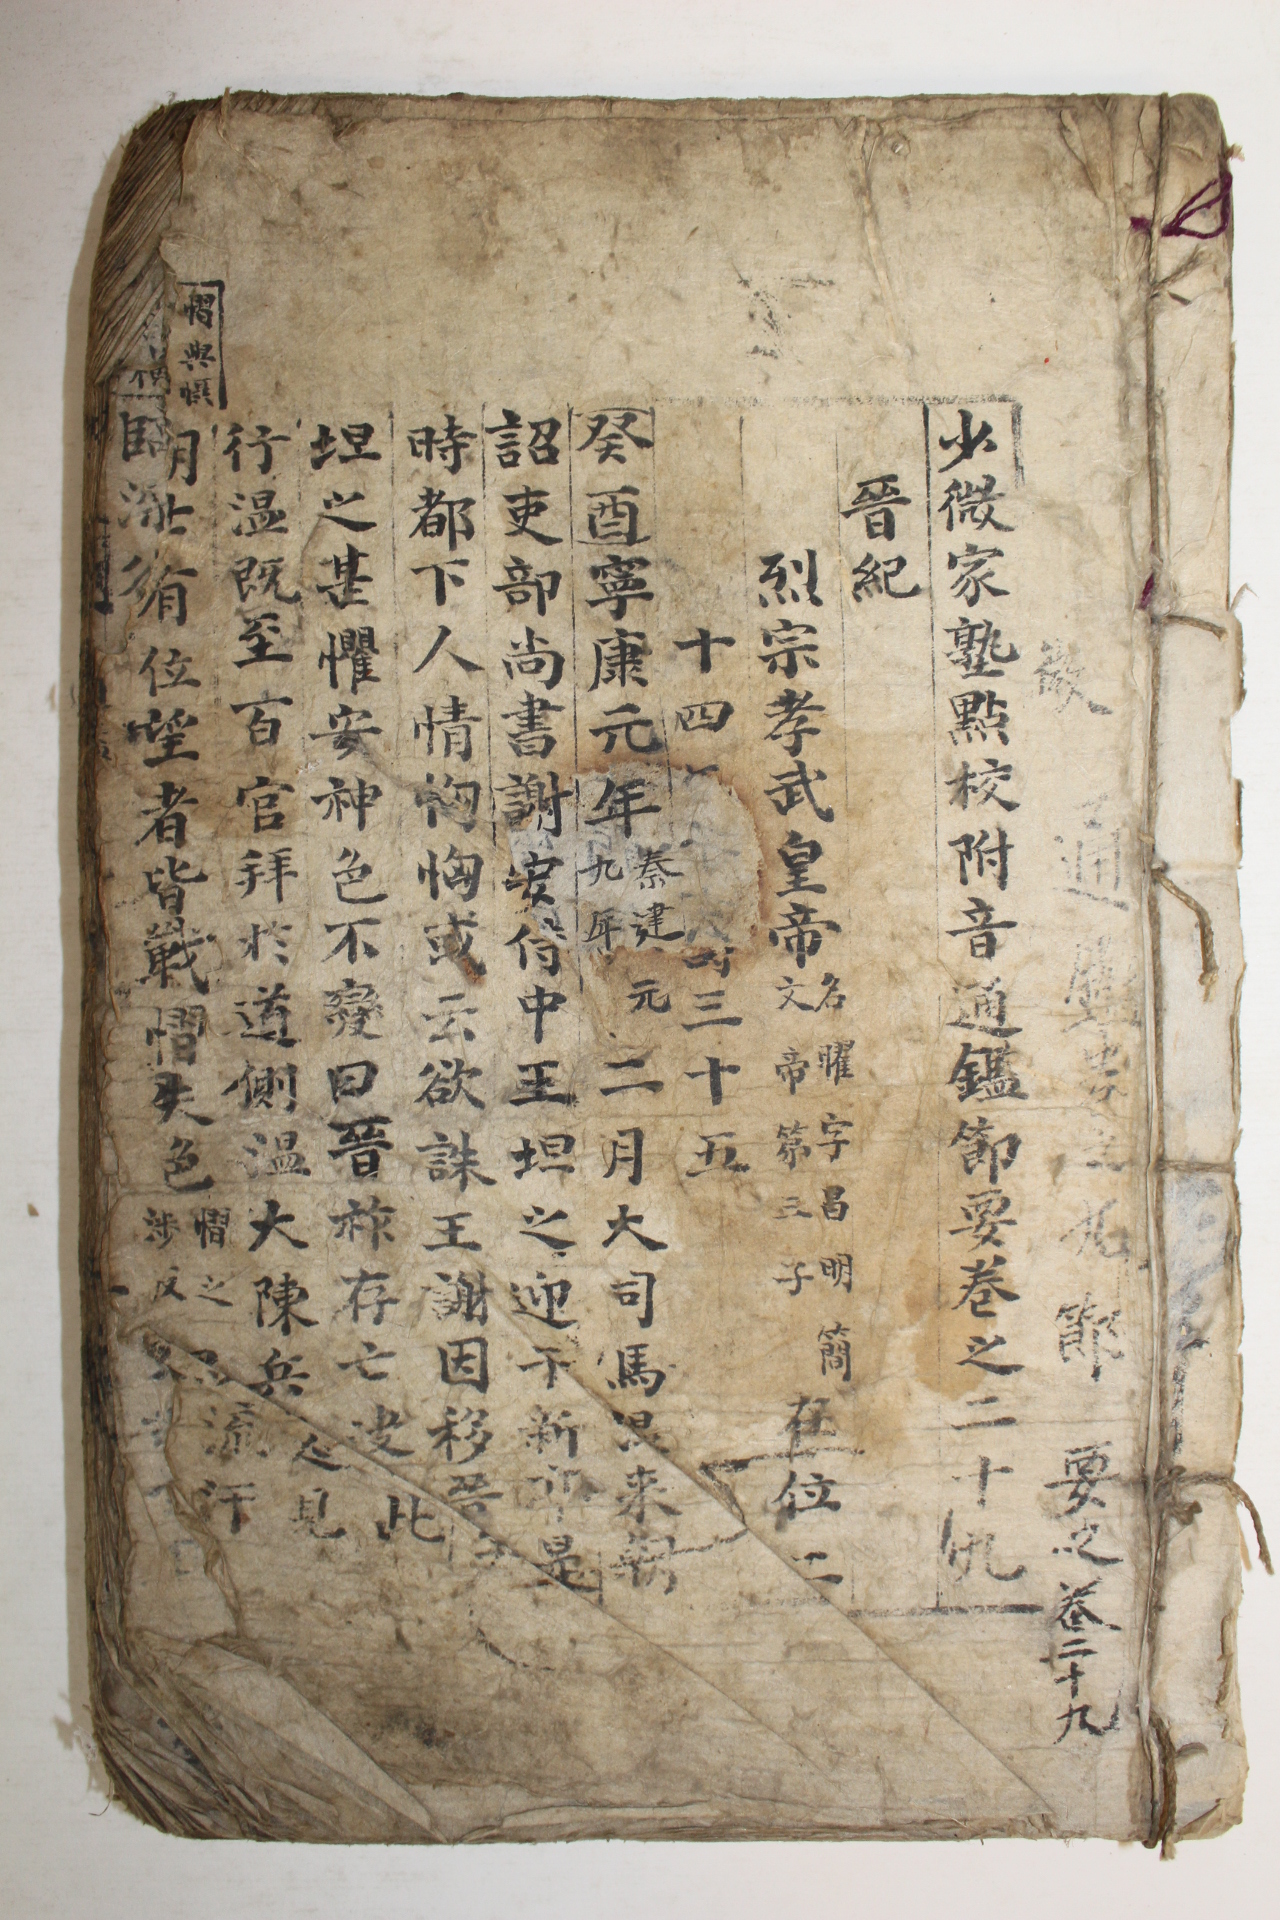 通鑑節要之卷二十九
少微家塾點校附音通鑑節要卷之二十九
晉紀
烈宗孝武皇帝 名曜字昌明簡文帝第三子 在位二
十四 三十五
癸酉寧康元年 秦建元九年 二月大司馬温來朝
詔吏部尚書謝安侍中王坦之迎于新 是
時都下人情恟恟或云欲誅王謝因移晉
坦之甚懼安神色不變曰晉祚存亡決此
行温既至百官拜於道側温大陳兵 見
朝 有位望者皆戰慴失色 慴之涉反 流汗
慴與懾